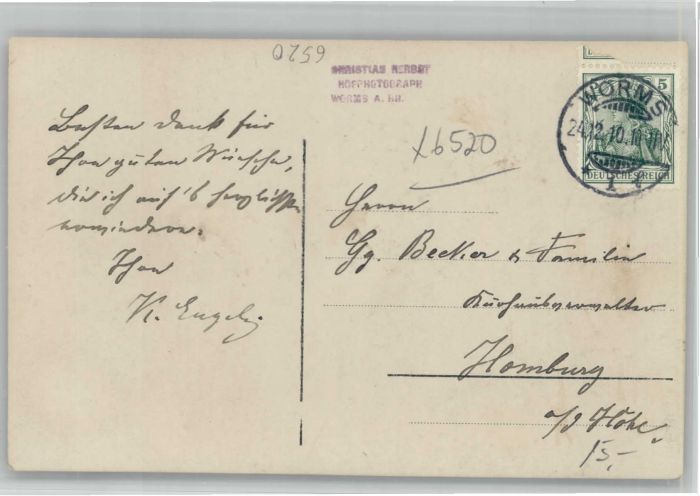 0259
CHRISTIAN HERBST
HOFPHOTOGRAPH
WORMS A. RH.
x6520
WORMS
24.12.10.11-12
5
DEUTSCHES REICH
Besten Dank für
Ihre guten Wünsche,
die ich auf's herzlichste
erwiedere.
Ihr
K. Engel
Herrn
Gg. Becker & Familie
Kurhausverwalter
Homburg
a/d Höhe
15,-